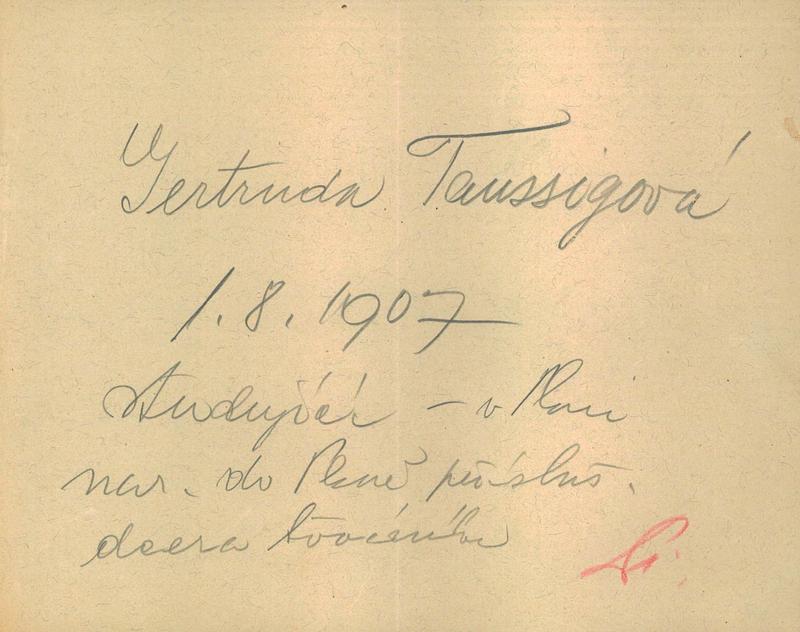 Gertruda Taussigová
1.8.1907
studující - v Plani
nar. do Plané přísluš.
dcera továrníka